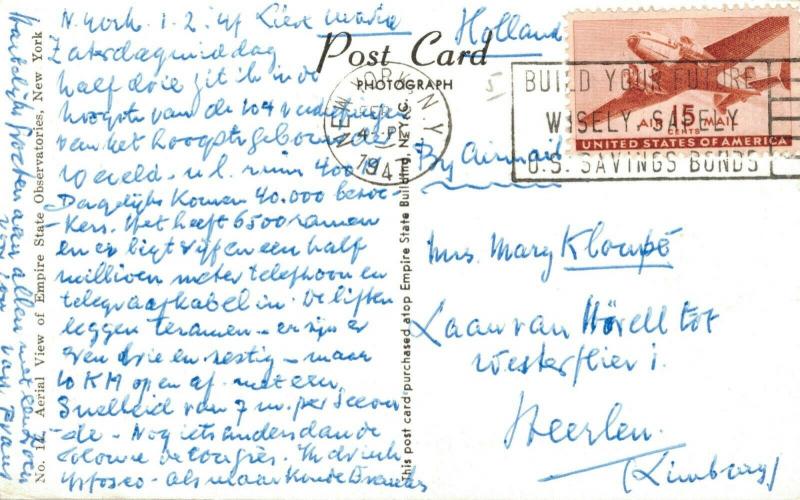 N. York 1.2.47 Lieve Marie
Zaterdagmiddag
half drie zit ik in de
hoogste van de 104 verdiepingen
van het hoogste gebouw der
wereld - n.l. ruim 400 M.
Dagelijks komen 40.000 bezoe-
kers. Het heeft 6500 ramen
en er ligt vijf en een half
millioen meter telefoon en
telegraafkabel in. De liften
leggen te samen - er zijn er
even drie en zestig - maar
10 KM op en af met een
snelheid van 7 m. per secon
de - Nog iets anders dan de
colonne de Congrès. Ik drink
als maar koude
Hartelijke groeten aan allen met een zoen
voor jou van Frans
No. 12. Aerial View of Empire State Observatories, New York
This post card purchased atop Empire State Building, N.Y.C.
Post Card
PHOTOGRAPH
Holland
NEW YORK, N.Y.
FEB
4-P
194
BUILD YOUR FUTURE
WISELY, SAFELY
U.S. SAVINGS BONDS
15
AIR MAIL
CENTS
UNITED STATES OF AMERICA
By Airmail
Mrs. Mary
Laan van Hövell tot
Westerflier 1.
Heerlen.
(Limburg)